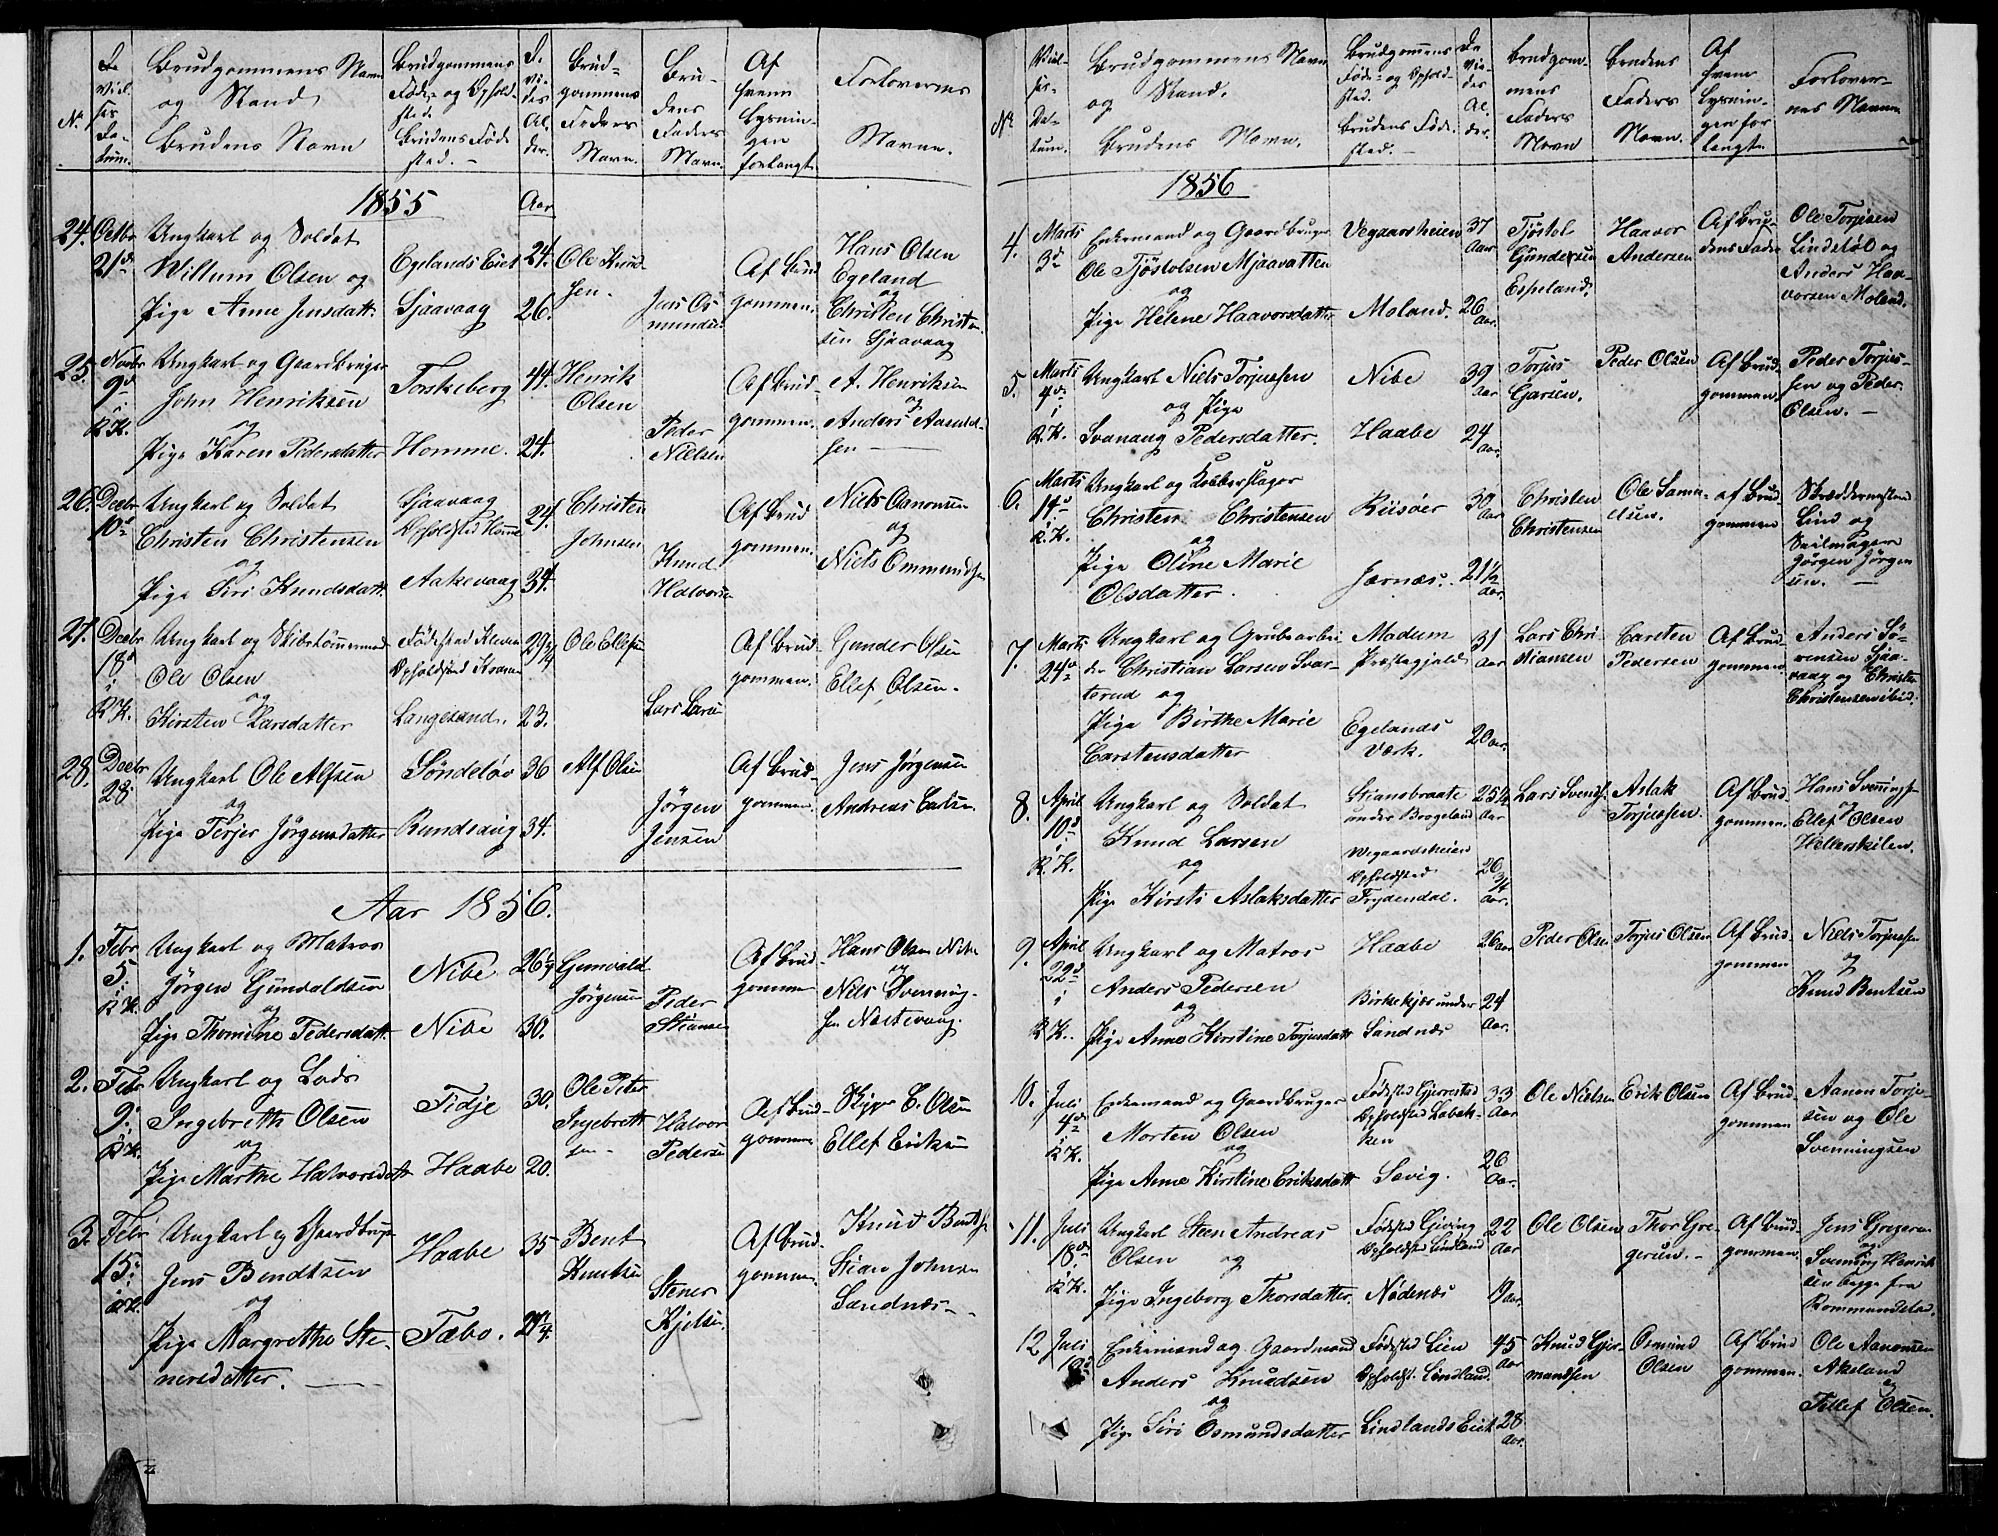 No.
De Viel- ses Da- tum.
Brudgommens Navn og Stand
Brudens Navn
Brudgommens Føde- og Ophold- sted
Brudens Føde sted. -
De Vi- des Al- der.
Brud- gommens Faders Navn.
Bru- dens Faders Navn.
Af hvem Lysnin- gen forlangt.
Forlovernes Navne.
1855
Aar
24. Octbr 21de
Ungkarl og Soldat
Willum Olsen og
Pige Anne Jensdatt.
Egelands Eiet 24.
Sjaavaag 26.
Ole Knud- sen.
Jens Os- mundsen
Af Brud gommen.
Hans Olsen Egeland
og
Christen Christen- sen Sjaavaag
25. Novbr 9d i R.K.
Ungkarl og Gaardbruger
John Henriksen
og
Pige Karen Pedersdatter
Torskeberg 44.
Homme. 24.
Henrik Olsen
Peder Nielsen
Af Brud gommen.
A. Henriksen
og
Anders Aanund- sen
26. Decbr 10de
Ungkarl og Soldat
Christen Christensen
og
Pige Siri Knudsdatt.
Sjaavaag
Opholdsted Homme 24.
Aakevaag 34.
Christen Johnsen
Knud Halvorsen
Af Brud gommen.
Niels Aanonsen
og
Niels Ommundsen
27. Decbr 18d i R.K.
Ungkarl og
Ole Olsen
og
Kirsten Larsdatter
Fødested Kleven
Opholdsted
29 1/4
Langesand. 23.
Ole Ellefsen
Lars Larsen
Af Brud- gommen.
Gunder Olsen
Ellef Olsen.
28. Decbr 28.
Ungkarl Ole Alfsen
og
Pige Terjer Jørgensdatter
Søndeløv 36
Rundsaug 34.
Alf Olsen
Jørgen Jensen
Af Brud- gommen.
Jens Jørgensen
Andreas
Aar 1856.
1. Febr 5. i R.K.
Ungkarl og Matros
Jørgen Gunvaldsen
og
Pige Thomine Pedersdatt.
Nibe 26 1/4
Nibe 30.
Gunvald Jørgensen
Peder Stiansen
Af Brud- gommen
Hans Olsen Nibe
og
Niels Svenning- sen Næstevaag.
2. Febr 9. i R.K.
Ungkarl og Lods
Ingebreth Olsen
og
Pige Marthe Halvorsdatt
Fidje 30.
Haabe 20.
Ole Peter Ingebreth sen
Halvor Pedersen
Af Brud- gommen
E. Olsen
Ellef Eriksen
3. Febr 15. i R.K.
Ungkarl og Gaardbruger
Jens Bendtsen
og
Pige Margrethe Ste- nersdatter.
Haabe 35
Fæbo. 21 1/4.
Bent Knutsen
Stener Kjelsen.
Af Brud- gommen.
Knud Bentsen
Stian Johnsen
Sandnæs
No
Viel- ses- Da- tum.
Brudgommens Navn og Stand.
Brudens Navn.
Brudgommens Føde- og Ophold- sted
Brudens Føde- sted.
De Vie- des Al- der.
Brudgom- mens Faders Navn
Brudens Faders Navn.
Af hvem Lysnin- gen for langt
Forlover- nes Navne
1856
4. Marts 3de
Enkemand og Gaardbruger
Ole Tjøstolsen Mjaavatten
og
Pige Helene Haavorsdatter
Vegaarsheien 37 Aar
Moland. 26 Aar.
Tjøstol Gundersen Espeland.
Haavor Andersen
Af Bru- dens Fader
Ole Torjesen Lindstøl og Anders Haa- vorsen Moland.
5. Marts 4de i R.K.
Ungkarl Niels Torjussen
og Pige
Svanaug Pedersdatter.
Nibe 39 Aar
Haabe 24 Aar.
Torjus Garsen.
Peder Olsen
Af Brud- gommen.
Peder Torjus- sen og Peder Olsen.
6. Marts 14d i R.K.
Ungkarl og Kobberslager
Christen Christensen
og
Pige Oline Marie
Olsdatter.
Riisøer 30 Aar
Jærnæs. 21 1/2 Aar.
Christen Christensen
Ole Samu- elsen.
Af Brud gommen
Skræddermester Lind og Seilmager Jørgen Jørgen sen.
7. Marts 24de
Ungkarl og Grubearbei-
der Christian Larsen Svar-
terud og
Pige Birthe Marie
Carstensdatter
Modum Præstegjeld 31 Aar
Egelands Værk. 20 Aar.
Lars Chri- stiansen
Carsten Pedersen
Af Brud gommen
Anders Sø- rensen Sjaa- vaag og Christen Christensen ibid.
8. April 10d i R.K.
Ungkarl og Soldat
Knud Larsen
og
Pige Kirsti Aslaksdatter
Stiansbraate under Brogeland 25 1/4 Aar
Vegaardsheien Opholdsted Frydendal. 26 3/4 Aar.
Lars Svends.
Aslak Torjussen.
Af Brud- gommen.
Hans Svenningsen
og
Ellef Olsen
9. April 22d i R.K.
Ungkarl og Matros
Anders Pedersen
og
Pige Anne Kirstine Torjusdatt
Haabe 26 Aar
Birkekjær under Sandnæs 24 Aar.
Peder Olsen
Torjus Olsen
Af Brud gommen
Niels Torjussen
og
Knud Bentsen
10. Juli 4de i R.K.
Enkemand og Gaardbruger
Morten Olsen
og
Pige Anne Kirstine Eriksdatt
Fødested Gjerrestad
Opholdsted 33 Aar
Savig. 26 Aar.
Ole Nielsen
Erik Olsen
Af Brud- gommen
Aanon Torje- sen og Ole Svenningsen
11. Juli 18de i R.K.
Ungkarl Steen Andreas
Olsen og
Pige Ingeborg Thorsdatter.
Fødested Giving
Opholdsted Lindland 22 Aar
Nødenæs 19 Aar.
Ole Olsen
Thor Gre- gersen.
Af Brud- gommen.
Jens Gregersen
og
Svening Henrik- sen begge fra
12 Juli 19d
Enkemand og Gaardmand
Anders Knudsen
og
Pige Siri Osmundsdatter
Fødested Lien
Opholdst. Lindland. 45 Aar
Lindlands Eiet 28 Aar.
Knud Gjer- mandsen
Osmund Olsen
Af Brud gommen.
Ole Aanonsen Akeland
og
Tellef Olsen.